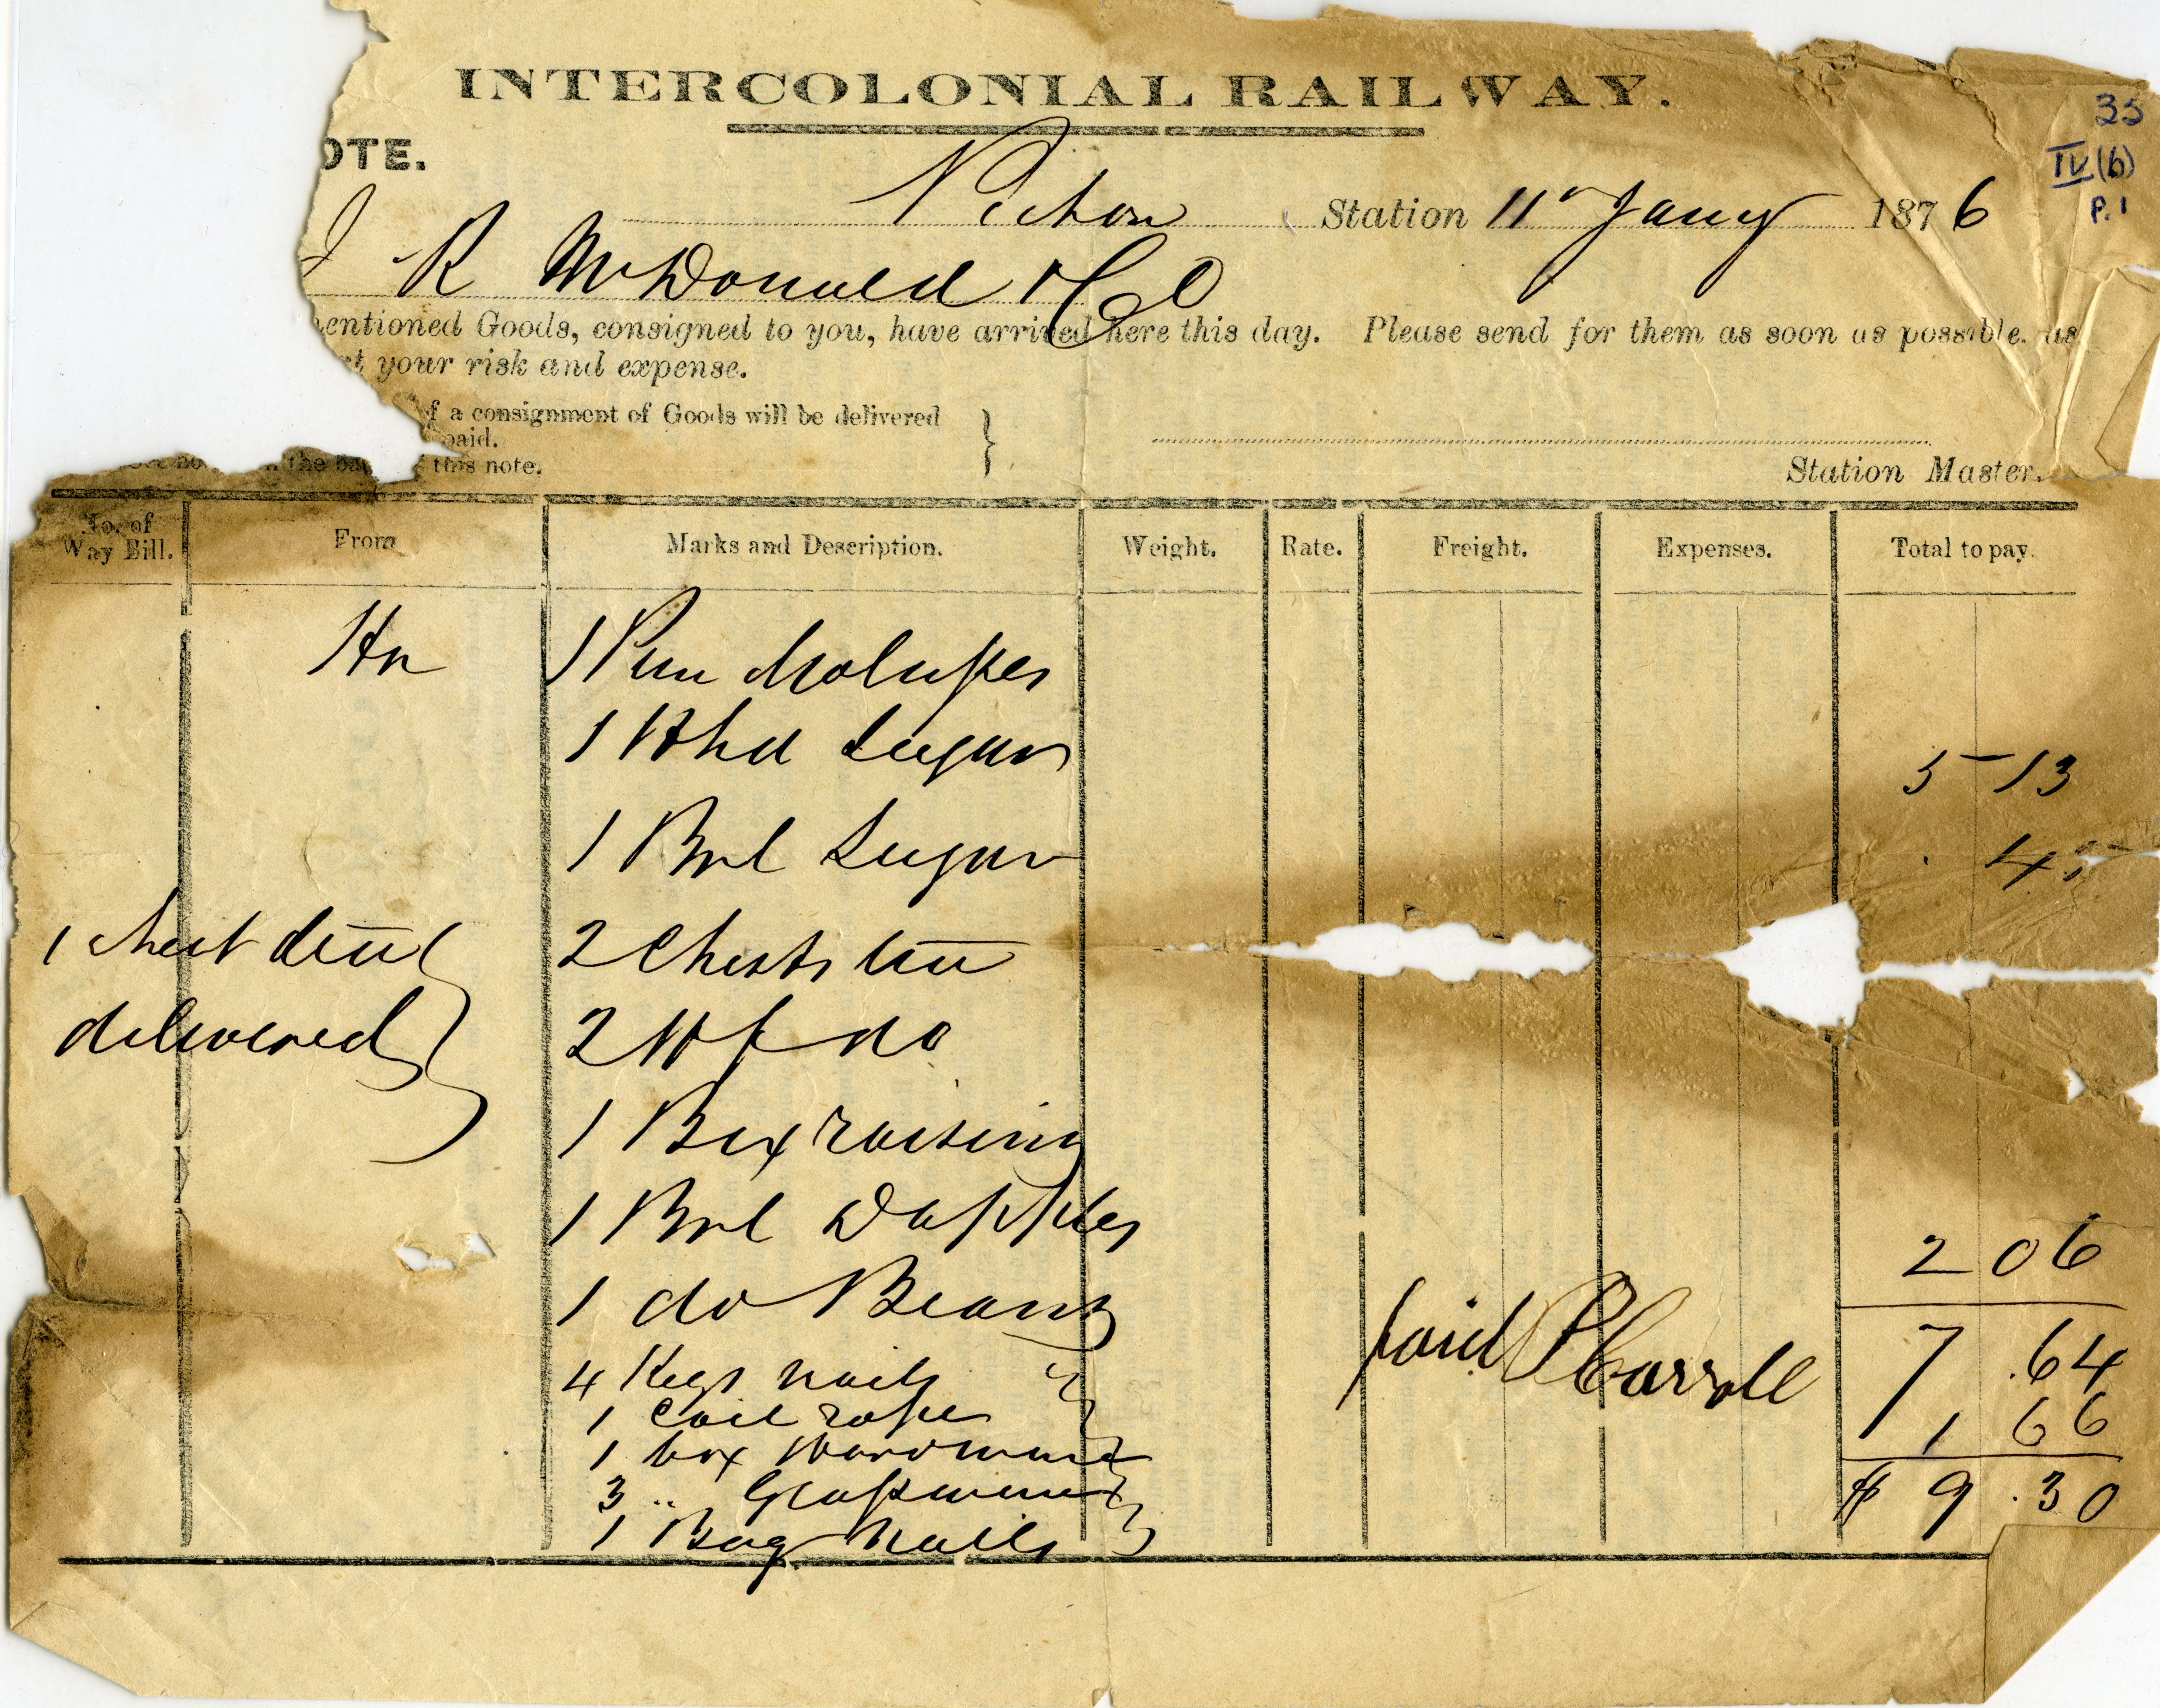 INTERCOLONIAL RAILWAY.
33
OTE.
IV (b)
P. 1
Pictou Station 11 Jany 1876
J R McDonald & Co
entioned Goods, consigned to you, have arrived here this day. Please send for them as soon as possible. as
at your risk and expense.
f a consignment of Goods will be delivered
paid.
the this note.
Station Master.
No. of Way Bill. From Marks and Description. Weight. Rate. Freight. Expenses. Total to pay.
Hx 1 Pun Molasses
1 Hhd Sugar 5 13
1 Brl Sugar . 45
1 chest tea 2 Chests tea
delivered 2 Hf do
1 Box raisins
1 Brl D apples 2 06
1 do Beans
4 Kegs nails paid P Carroll 7 .64
1 Coil rope
1 box Hardware 1 66
3 " Glassware $ 9 .30
1 Bag nails